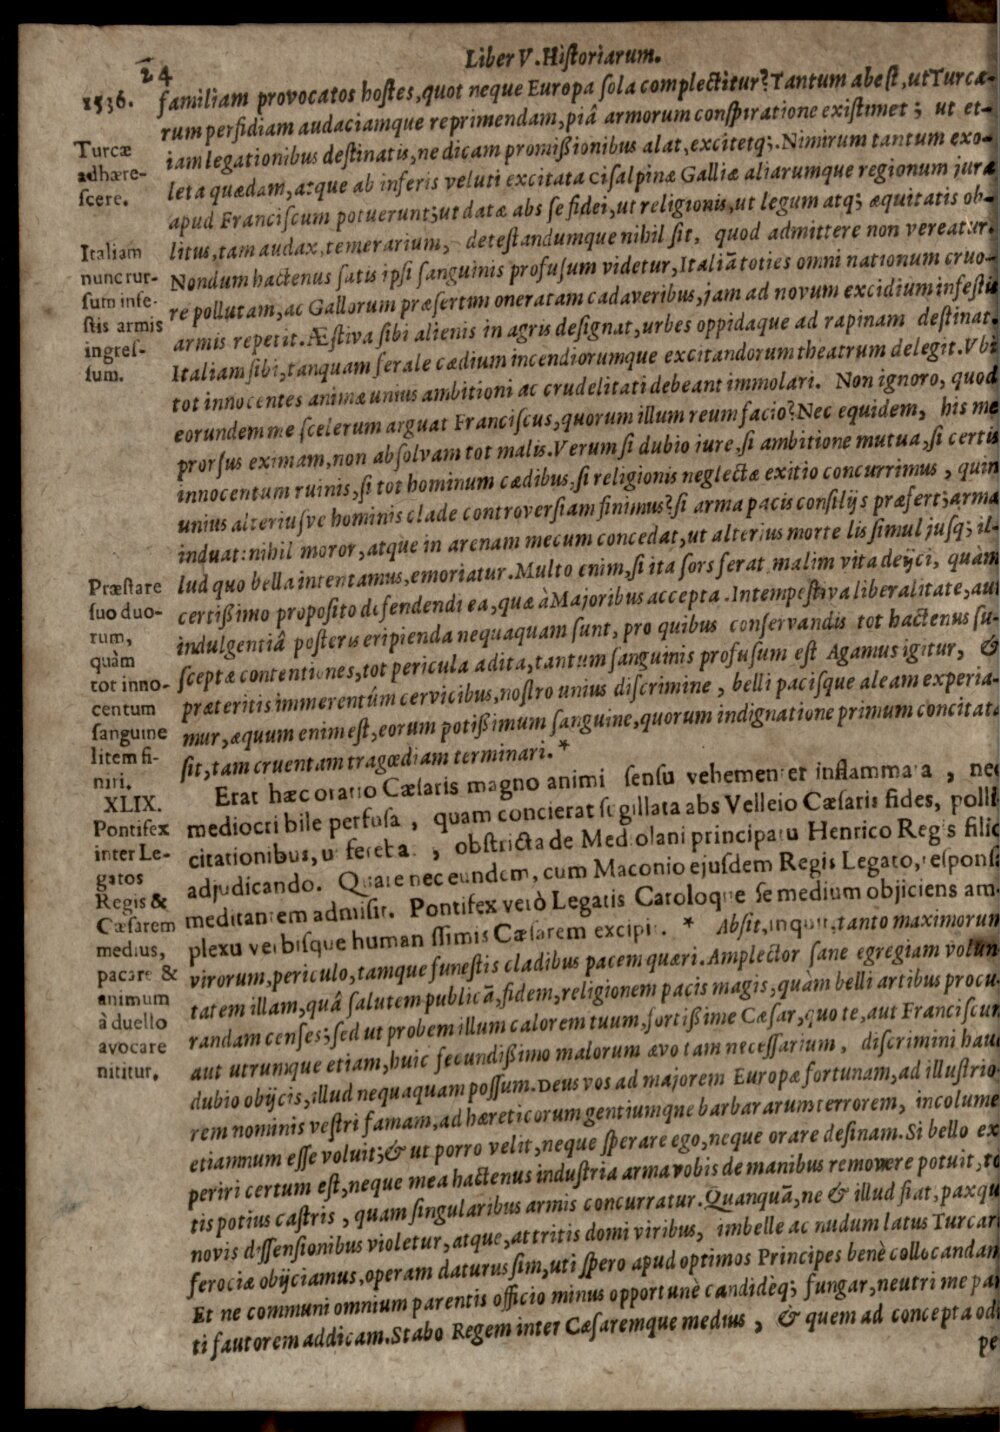 24
Liber V. Historiarum.
1536.
familiam provocatos hostes, quot neque Europa sola complectitur? Tantum abest, ut Turcæ-
rum perfidiam audaciamque reprimendam, piâ armorum conspiratione existimet; ut et-
iam legationibus destinatis, ne dicam promißionibus alat, excitetq;. Nimirum tantum exo-
leta quædam, atque ab inferis veluti excitata cisalpinæ Galliæ aliarumque regionum jura
apud Franciscum potuerunt; ut datæ abs se fidei, ut religionis, ut legum atq; æquitatis ob-
litus, tam audax, temerarium, detestandumque nihil sit, quod admittere non vereatur.
Nondum hactenus satis ipsi sanguinis profusum videtur, Italiā toties omni nationum cruo-
re pollutam, ac Gallorum præsertim oneratam cadaveribus, jam ad novum excidium infestis
armis repetit. Æstiva sibi alienis in agris designat, urbes oppidaque ad rapinam destinat.
Italiam sibi, tanquam ferale cædium incendiorumque excitandorum theatrum delegit. Vbi
tot innocentes animæ unius ambitioni ac crudelitati debeant immolari. Non ignoro, quod
eorundem me scelerum arguat Franciscus, quorum illum reum facio? Nec equidem, his me
prorsus eximam, non absolvam tot malis. Verum si dubio iure, si ambitione mutua, si certis
innocentum ruinis, si tot hominum cædibus, si religionis neglectæ exitio concurrimus, quin
unius alteriusve hominis clade controversiam finimus? si arma pacis consilijs præfert; arma
induat: nihil moror, atque in arenam mecum concedat, ut alterius morte lis simul jusq; il-
lud quo bella intentamus, emoriatur. Multo enim, si ita sors ferat malim vita deijci, quàm
certißimo proposito defendendi ea, quæ à Majoribus accepta. Intempestiva liberalitate, aut
indulgentiâ posteris eripienda nequaquam sunt, pro quibus conservandis tot hactenus su-
sceptæ contentiones, tot pericula adita, tantum sanguinis profusum est Agamus igitur, &
præteritis immerentúm cervicibus, nostro unius discrimine, belli pacisque aleam experia-
mur, æquum enim est, eorum potißimum sanguine, quorum indignatione primum concitata
sit, tam cruentam tragœdiam terminari. *
Turcæ
adhære-
scere.
Italiam
nunc rur-
sum infe-
stis armis
ingres-
sum.
Præstare
suo duo-
rum,
quàm
tot inno-
centum
sanguine
litem fi-
niri.
XLIX.
Pontifex
inter Le-
gatos
Regis &
Cæsarem
medius,
pacare &
animum
à duello
avocare
nititur.
Erat hæc oratio Cæsaris magno animi sensu vehementer inflammata, nec
mediocri bile perfusa, quam concierat sugillata abs Velleio Cæsaris fides, polli-
citationibus, ferebat, obstricta de Mediolani principatu Henrico Regis filio
adjudicando. Quare nec eundem, cum Maconio ejusdem Regis Legato, responsa
meditantem admisit. Pontifex verò Legatis Caroloque se medium objiciens am-
plexu verbisque humanissimis Cæsarem excipit. * Absit, inquit, tanto maximorum
virorum, periculo, tamque funestis cladibus pacem quæri. Amplector sane egregiam volun-
tatem illam, quâ salutem publicā, fidem, religionem pacis magis, quàm belli artibus procu-
randam censes; sed ut probem illum calorem tuum, fortißime Cæsar, quo te, aut Franciscum
aut utrumque etiam, huic fecundißimo malorum ævo tam necessarium, discrimini haud
dubio obijcis, illud nequaquam possum. Deus vos ad majorem Europæ fortunam, ad illustrio-
rem nominis vestri famam, ad hæreticorum gentiumque barbararum terrorem, incolumes
etiamnum esse voluit; & ut porro velit, neque sperare ego, neque orare desinam. Si bello ex-
periri certum est, neque mea hactenus industria arma vobis de manibus removere potuit, to-
tis potius castris, quam singularibus armis concurratur. Quanquā, ne & illud fiat, paxque
novis dissensionibus violetur, atque, attritis domi viribus, imbelle ac nudum latus Turcarum
ferociæ obijciamus, operam daturus sim, uti spero apud optimos Principes benè collocandam
Et ne communi omnium parentis officio minus opportunè candidèq; fungar, neutri me par-
ti fautorem addicam. Stabo Regem inter Cæsaremque medius, & quem ad concepta odi
pe